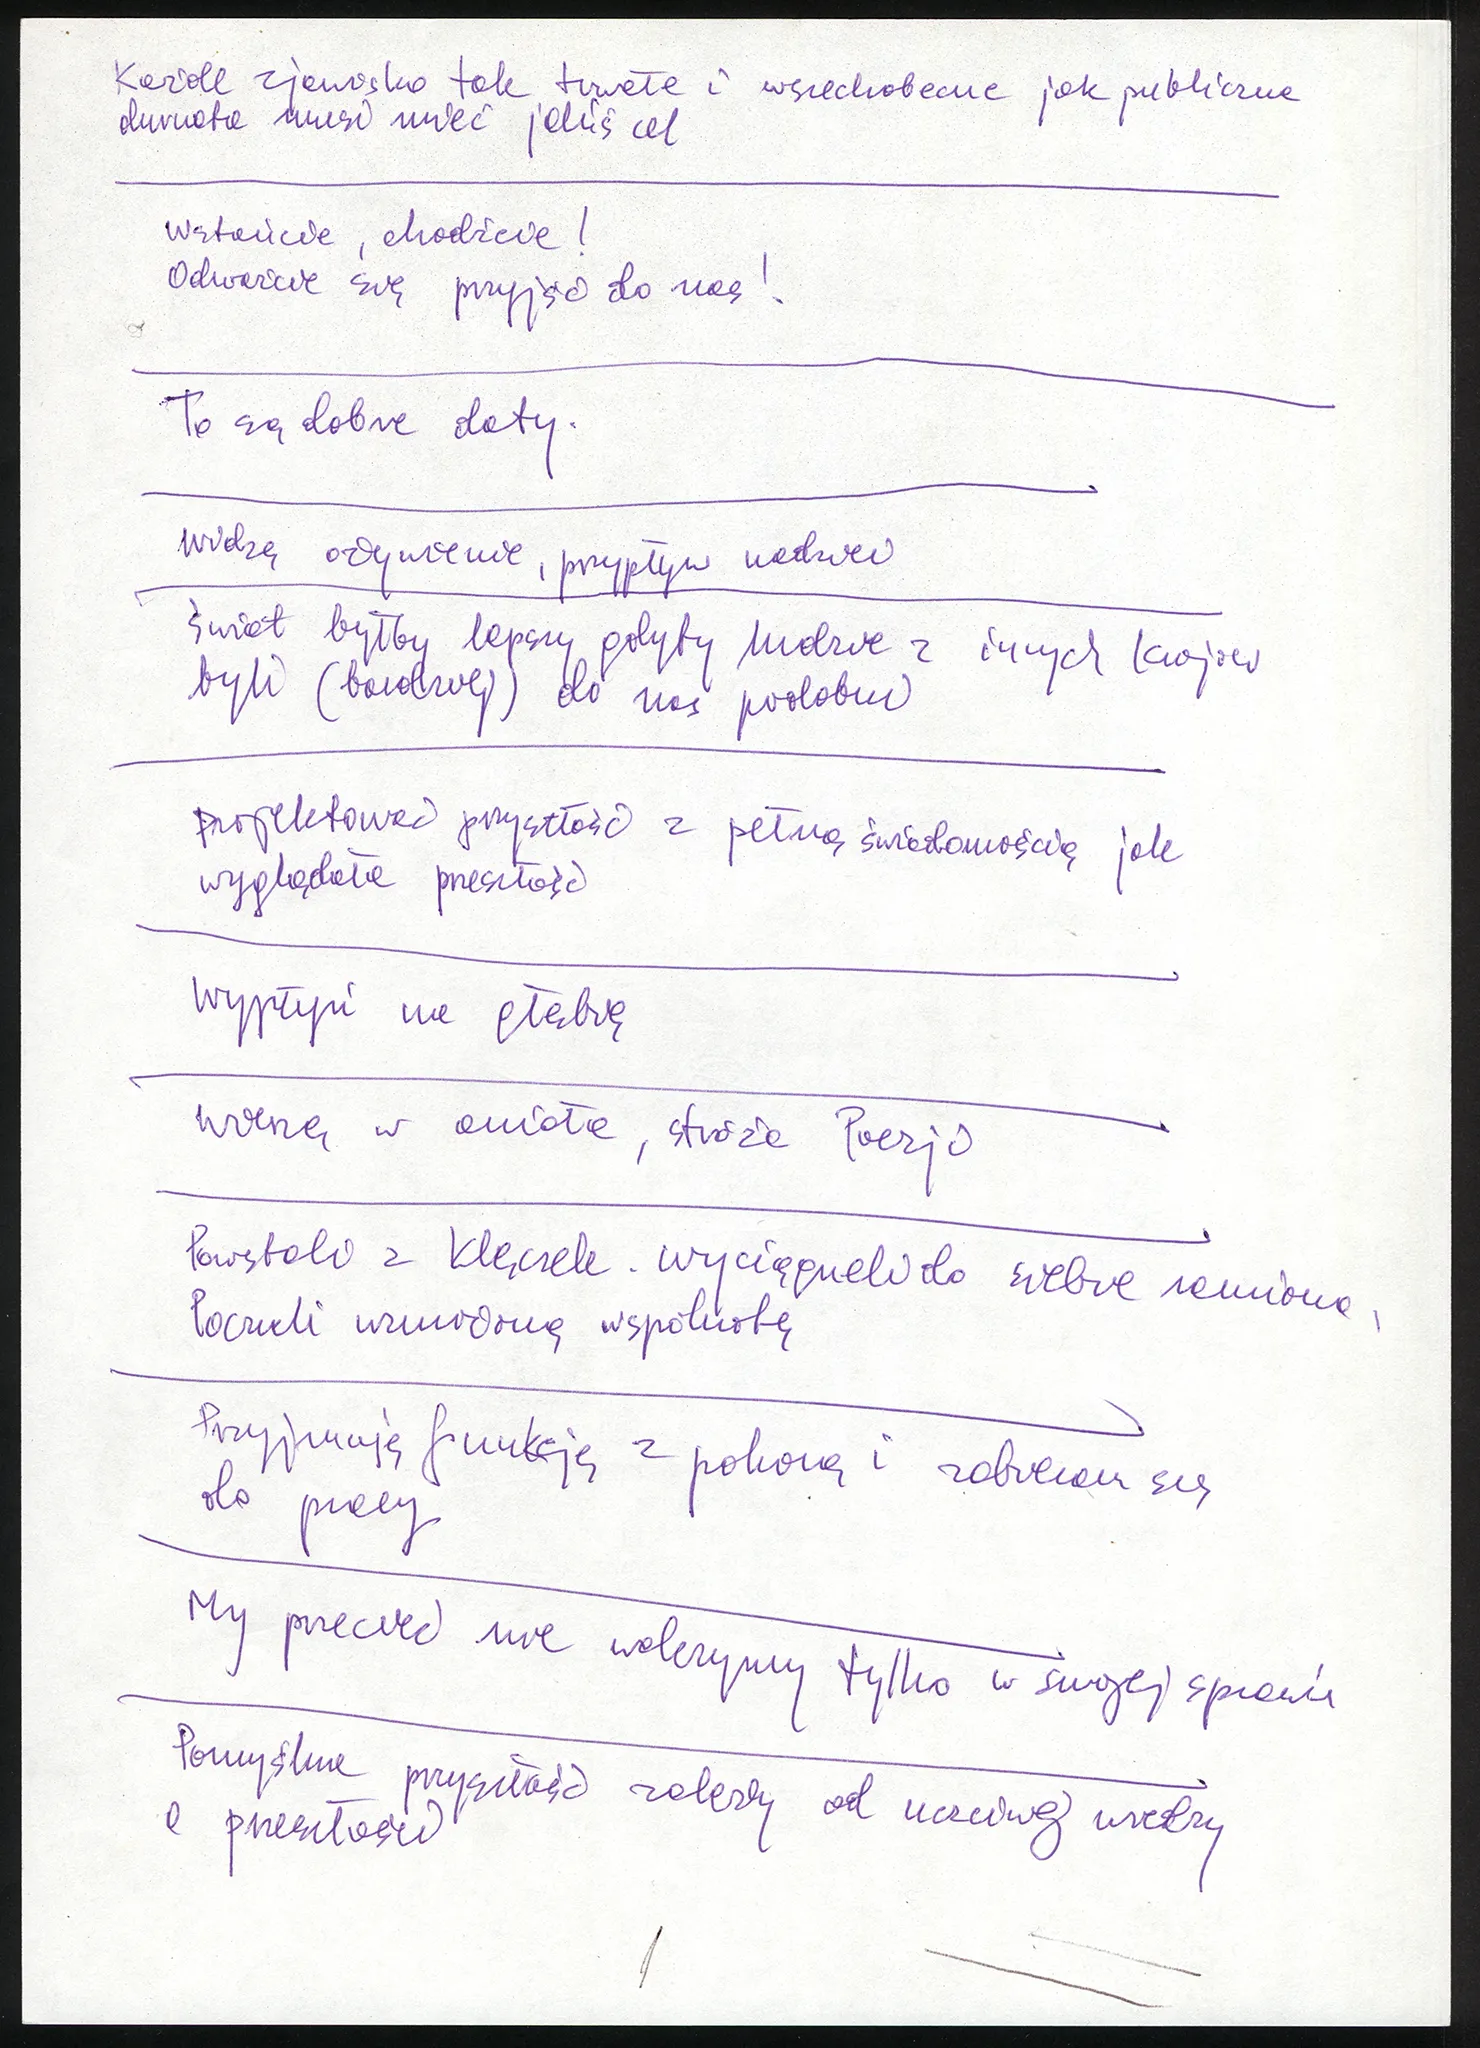 Każde zjawisko tak trwałe i wszechobecne jak publiczna
durnota musi mieć jakiś cel
Wstańcie, chodźcie!
Odważcie się przyjść do nas!
To są dobre daty.
Widzę ożywienie, przypływ nadziei
Świat byłby lepszy gdyby ludzie z innych krajów
byli (bardziej) do nas podobni
projektować przyszłość z pełną świadomością jak
wyglądała przeszłość
Wypłyń na głębię
Wierzę w anioła, stróża Poezji
Powstali z klęczek. Wyciągnęli do siebie ramiona,
Poczuli wzmożoną wspólnotę
Przyjmuję funkcję z pokorą i zabieram się
do pracy
My przecież nie walczymy tylko w swojej sprawie
Pomyślna przyszłość zależy od uczciwej wiedzy
o przeszłości